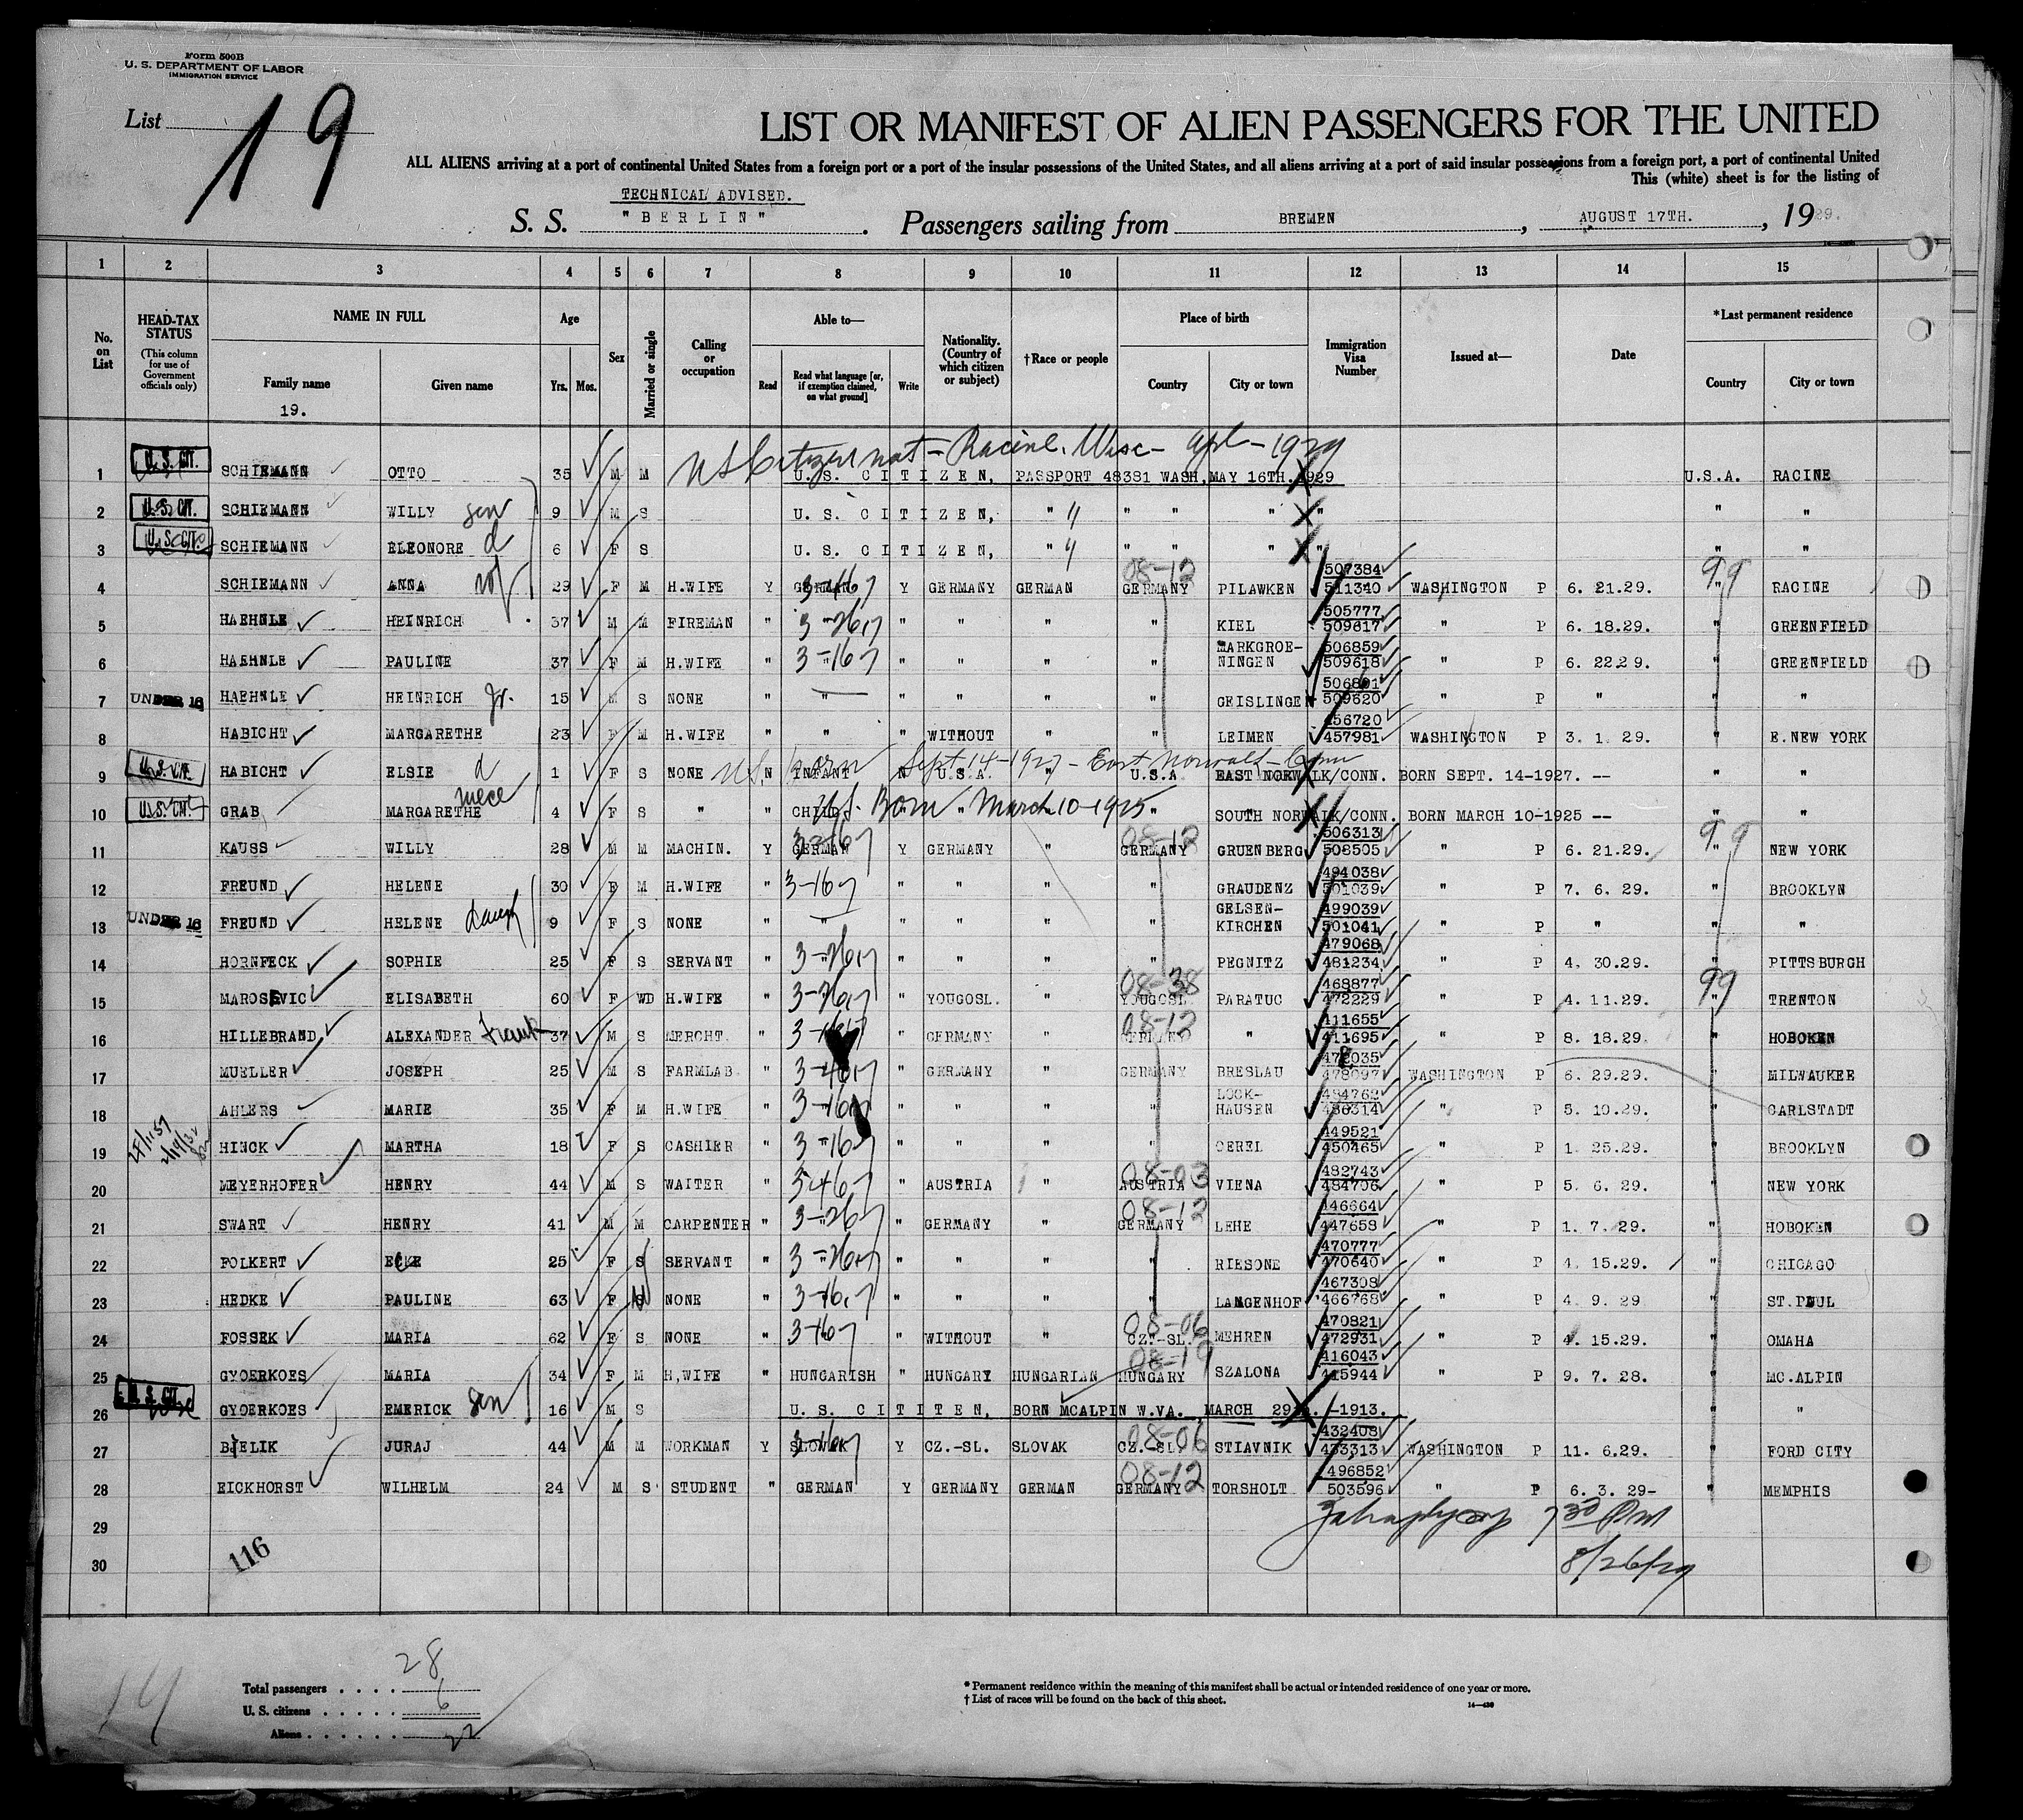 Form 500B
U. S. DEPARTMENT OF LABOR
IMMIGRATION SERVICE
List 19
LIST OR MANIFEST OF ALIEN PASSENGERS FOR THE UNITED
ALL ALIENS arriving at a port of continental United States from a foreign port or a port of the insular possessions of the United States, and all aliens arriving at a port of said insular possessions from a foreign port, a port of continental United
This (white) sheet is for the listing of
TECHNICAL ADVISED.
S. S. "BERLIN". Passengers sailing from BREMEN, AUGUST 17TH., 1929.
1 2 3 4 5 6 7 8 9 10 11 12 13 14 15
No. on List
HEAD-TAX STATUS (This column for use of Government officials only)
NAME IN FULL Family name Given name
Age Yrs. Mos.
Sex
Married or single
Calling or occupation
Able to— Read Read what language [or, if exemption claimed, on what ground] Write
Nationality. (Country of which citizen or subject)
†Race or people
Place of birth Country City or town
Immigration Visa Number
Issued at—
Date
*Last permanent residence Country City or town
19.
US Citizen nat - Racine, Wisc - Apl - 1929
1 U. S. CIT. SCHIEMANN OTTO 35 M M U.S. CITIZEN, PASSPORT 48381 WASH, MAY 16TH. 1929 U.S.A. RACINE
2 U. S. CIT. SCHIEMANN WILLY son 9 M S U.S. CITIZEN, " " " " " " "
3 U. S. CIT. SCHIEMANN ELEONORE d 6 F S U.S. CITIZEN, " " " " " " "
08-12 507384 99
4 SCHIEMANN ANNA wf 29 F M H.WIFE Y GERMAN 3-16 Y GERMANY GERMAN GERMANY PILAWKEN 511340 WASHINGTON P 6. 21.29. " RACINE
505777
5 HAEHNLE HEINRICH 37 M M FIREMAN " 3-26 " " " " KIEL 509617 " P 6. 18.29. " GREENFIELD
MARKGROE- 506859
6 HAEHNLE PAULINE 37 F M H.WIFE " 3-16 " " " " NINGEN 509618 " P 6. 22.29. " GREENFIELD
7 UNDER 16 HAEHNLE HEINRICH Jr. 15 M S NONE " " " " " " GEISLINGEN 509620 " P " " "
456720
8 HABICHT MARGARETHE 23 F M H.WIFE " " " WITHOUT " " LEIMEN 457981 WASHINGTON P 3. 1. 29. " E.NEW YORK
US. born Sept 14-1927 - East Norwalk - Conn
9 U. S. CIT. HABICHT ELSIE d 1 F S NONE N INFANT N U.S.A. " U.S.A EAST NORWALK/CONN. BORN SEPT. 14-1927. -- " "
U.S. Born March 10-1925
10 U. S. CIT. GRAB MARGARETHE niece 4 F S " " CHILD " " " " SOUTH NORWALK/CONN. BORN MARCH 10-1925 -- " "
08-12 506313 99
11 KAUSS WILLY 28 M M MACHIN. Y GERMAN Y GERMANY " GERMANY GRUENBERG 508505 " P 6. 21.29. " NEW YORK
494038
12 FREUND HELENE 30 F M H.WIFE " 3-16 " " " " GRAUDENZ 501039 " P 7. 6. 29. " BROOKLYN
GELSEN- 499039
13 UNDER 16 FREUND HELENE daugh 9 F S NONE " " " " " " KIRCHEN 501041 " P " " "
479068
14 HORNFECK SOPHIE 25 F S SERVANT " 3-26 " " " " PEGNITZ 481234 " P 4. 30.29. " PITTSBURGH
08-38 468877 99
15 MAROSEVIC ELISABETH 60 F WD H.WIFE " 3-26 " YOUGOSL. " YOUGOSL. PARATUC 472229 " P 4. 11.29. " TRENTON
08-12 411655
16 HILLEBRAND ALEXANDER Frank 37 M S MERCHT. " " GERMANY " GERMANY " 411695 " P 8. 18.29. " HOBOKEN
17 MUELLER JOSEPH 25 M S FARMLAB. " " GERMANY " GERMANY BRESLAU 478097 WASHINGTON P 6. 29.29. " MILWAUKEE
LOCK- 484762
18 AHLERS MARIE 35 F M H.WIFE " 3-16 " " " " HAUSEN 486314 " P 5. 10.29. " CARLSTADT
449521
19 HINCK MARTHA 18 F S CASHIER " 3-16 " " " " OEREL 450465 " P 1. 25.29. " BROOKLYN
08-03 482743
20 MEYERHOFER HENRY 44 M S WAITER " " AUSTRIA " AUSTRIA VIENA 484706 " P 5. 6. 29. " NEW YORK
08-12 446664
21 SWART HENRY 41 M M CARPENTER " 3-26 " GERMANY " GERMANY LEHE 447658 " P 1. 7. 29. " HOBOKEN
470777
22 FOLKERT EKE 25 F S SERVANT " 3-26 " " " " RIESONE 470640 " P 4. 15.29. " CHICAGO
467308
23 HEDKE PAULINE 63 F W NONE " 3-16 " " " " LANGENHOF 466768 " P 4. 9. 29 " ST.PAUL
08-06 470821
24 FOSSEK MARIA 62 F S NONE " 3-16 " WITHOUT " CZ.-SL. MEHREN 472931 " P 4. 15.29. " OMAHA
08-19 416043
25 GYOERKOES MARIA 34 F M H,WIFE " HUNGARISH " HUNGARY HUNGARIAN HUNGARY SZALONA 415944 " P 9. 7. 28. " MC.ALPIN
26 U. S. CIT. GYOERKOES EMERICK son 16 M S U.S. CITITEN, BORN MCALPIN W.VA., MARCH 29. -1913. " "
08-06 432403
27 BJELIK JURAJ 44 M M WORKMAN Y SLOWAK Y CZ.-SL. SLOVAK CZ.-SL. STIAVNIK 433313 WASHINGTON P 11. 6.29. " FORD CITY
08-12 496852
28 EICKHORST WILHELM 24 M S STUDENT " GERMAN Y GERMANY GERMAN GERMANY TORSHOLT 503596 " P 6. 3. 29- " MEMPHIS
29 7 30 PM
30 116 8/26/29
Total passengers . . . . 28
U. S. citizens . . . . . 6
Aliens . . . . . . 22
* Permanent residence within the meaning of this manifest shall be actual or intended residence of one year or more.
† List of races will be found on the back of this sheet.
14—430